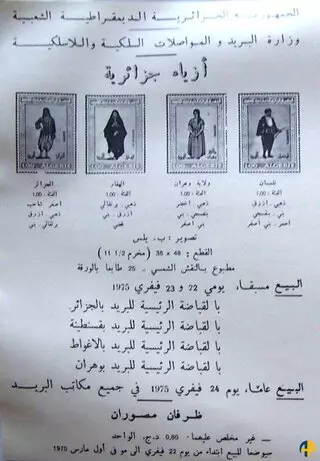 الجمهورية الجزائرية الديمقراطية الشعبية
وزارة البريد و المواصلات السلكية واللاسلكية
أزياء جزائرية
1.00 ALGERIE
1.00 ALGERIE
1.00 ALGERIE
1.00 ALGERIE
تلمسان
الفئة : 1,00
ذهبي ـ أزرق
بنفسجي ـ بني
أصفر ـ بني أصفر
ولاية وهران
الفئة : 1,00
ذهبي ـ أخضر
بنفسجي ـ بني
أحمر ـ بني
الهقار
الفئة : 1,00
ذهبي ـ برتقالي
أزرق ـ بني
فضي
الجزائر
الفئة : 1,00
أصفر شاحب
ذهبي ـ أزرق
برتقالي ـ بني
تصوير : ب. يلس
القطع : 48 × 38 (مخرم 1/2 11)
مطبوع بالنقش الشمسي ـ 25 طابعا بالورقة
البيع مسبقا، يومي 22 و 23 فيفري 1975
با لقباضة الرئيسية للبريد بالجزائر
با لقباضة الرئيسية للبريد بقسنطينة
با لقباضة الرئيسية للبريد بالاغواط
با لقباضة الرئيسية للبريد بوهران
البيع عاما، يوم 24 فيفري 1975 في جميع مكاتب البريد
ظرفان مصوران
ـ غير مخلص عليهما : 0,80 د.ج. الواحد
سيوضعا للبيع ابتداء من يوم 22 فيفري الى موفى أول مارس 1975